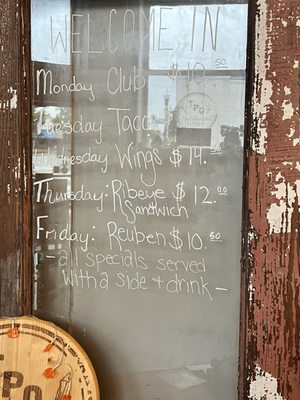 WELCOME IN
Monday Club $10.50
Tuesday Taco
Wednesday Wings $14.
Thursday: Ribeye $12.00
Sandwich
Friday: Reuben $10.50
- all specials served
with a side + drink -
TPGT
PO